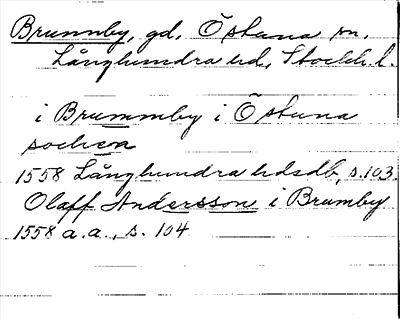 Brunnby, gd, Östuna sn,
Långhundra hd, Stockh. l.
i Brummby i Östuna
sochen
1558 Långhundra hdsdb, s. 103.
Olaff Andersson i Brumby
1558 a. a., s. 104